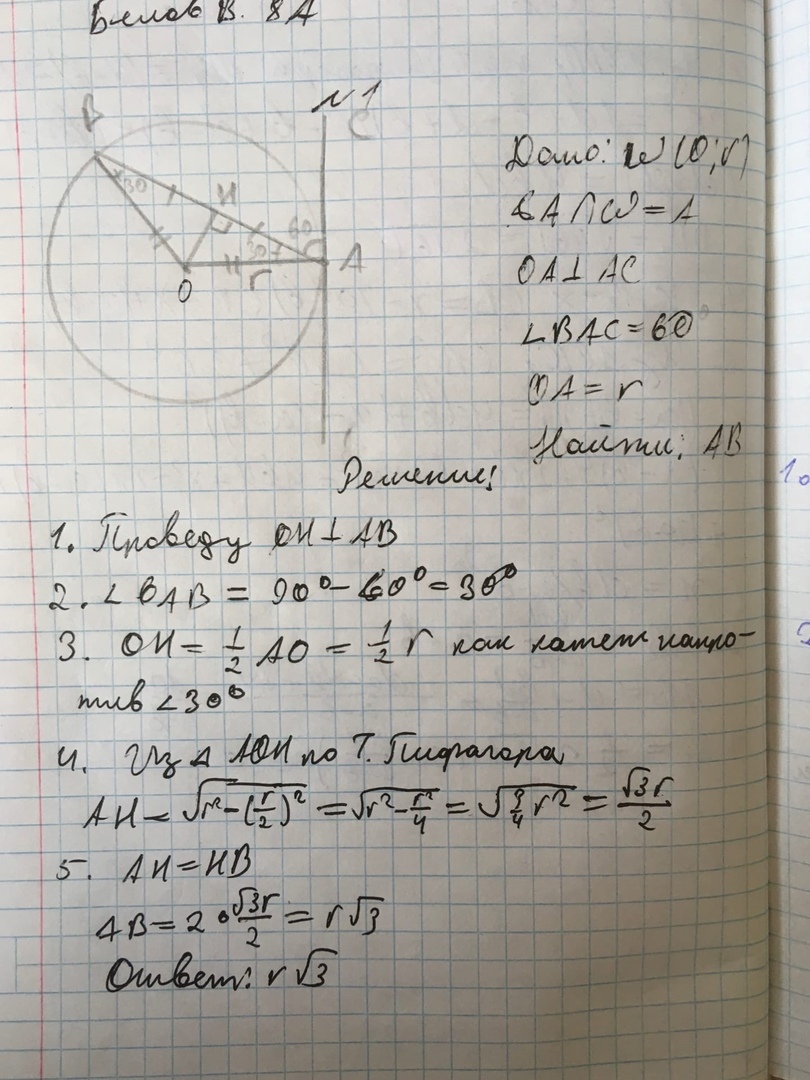 Белов В. 8А
№1
B
C
30
H
60
30
A
O
r
Дано: ω(O;r)
CA∩ω=A
OA⊥AC
∠BAC=60°
OA=r
Найти: AB
Решение:
1. Проведу OH⊥AB
2. ∠OAB = 90°-60°=30°
3. OH= 1/2 AO = 1/2 r как катет напро-
тив ∠30°
4. Из Δ AOH по Т. Пифагора
AH=√(r²-(r/2)²) = √(r²-r²/4) = √(3/4 r²) = √3r/2
5. AH=HB
AB=2·√3r/2 = r√3
Ответ: r√3